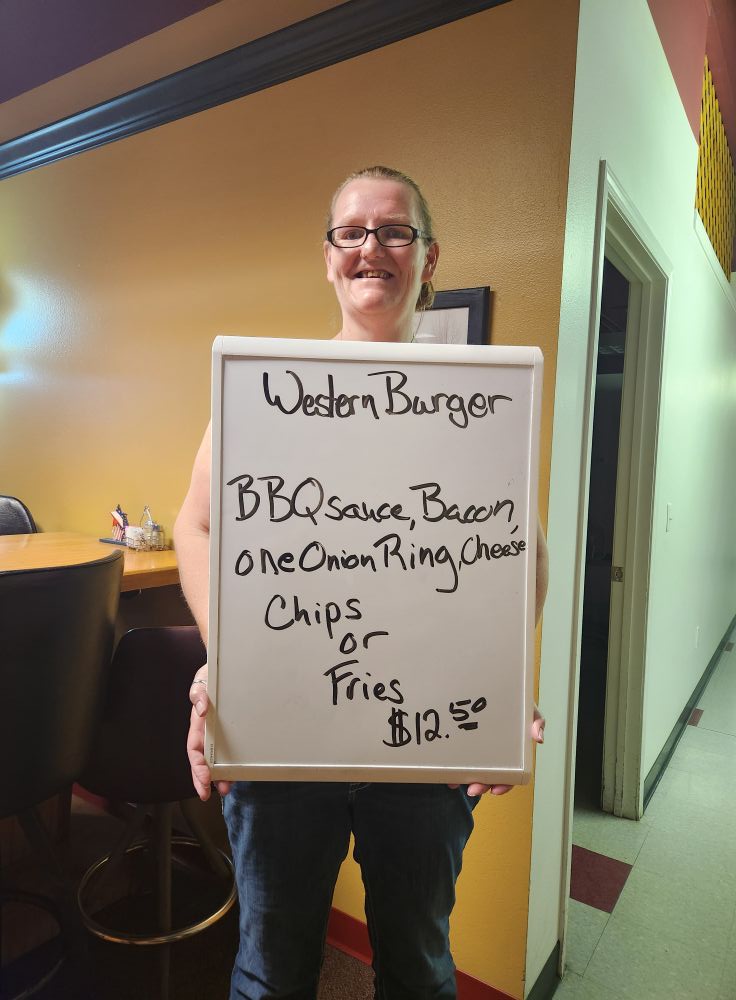 Western Burger
BBQ sauce, Bacon,
one Onion Ring, Cheese
Chips
or
Fries
$12.50